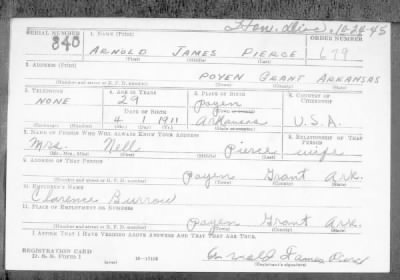 Hon. disc. 10-26-45
SERIAL NUMBER 1. NAME (Print) ORDER NUMBER
340 ARNOLD JAMES PIERCE 679
(First) (Middle) (Last)
2. ADDRESS (Print)
POYEN GRANT ARKANSAS
(Number and street or R. F. D. number) (Town) (County) (State)
3. TELEPHONE 4. AGE IN YEARS 5. PLACE OF BIRTH 6. COUNTRY OF CITIZENSHIP
NONE 29 Poyen
DATE OF BIRTH (Town or county)
4 1 1911 Arkansas U.S.A.
(Exchange) (Number) (Mo.) (Day) (Yr.) (State or country)
7. NAME OF PERSON WHO WILL ALWAYS KNOW YOUR ADDRESS 8. RELATIONSHIP OF THAT PERSON
Mrs. Nell Pierce wife
(Mr., Mrs., Miss) (First) (Middle) (Last)
9. ADDRESS OF THAT PERSON
Poyen Grant Ark.
(Number and street or R. F. D. number) (Town) (County) (State)
10. EMPLOYER'S NAME
Clarence Burrow
11. PLACE OF EMPLOYMENT OR BUSINESS
Poyen Grant Ark.
(Number and street or R. F. D. number) (Town) (County) (State)
I AFFIRM THAT I HAVE VERIFIED ABOVE ANSWERS AND THAT THEY ARE TRUE.
REGISTRATION CARD
D. S. S. Form 1 (over) 16-17105 Arnold James Pierce
(Registrant's signature)